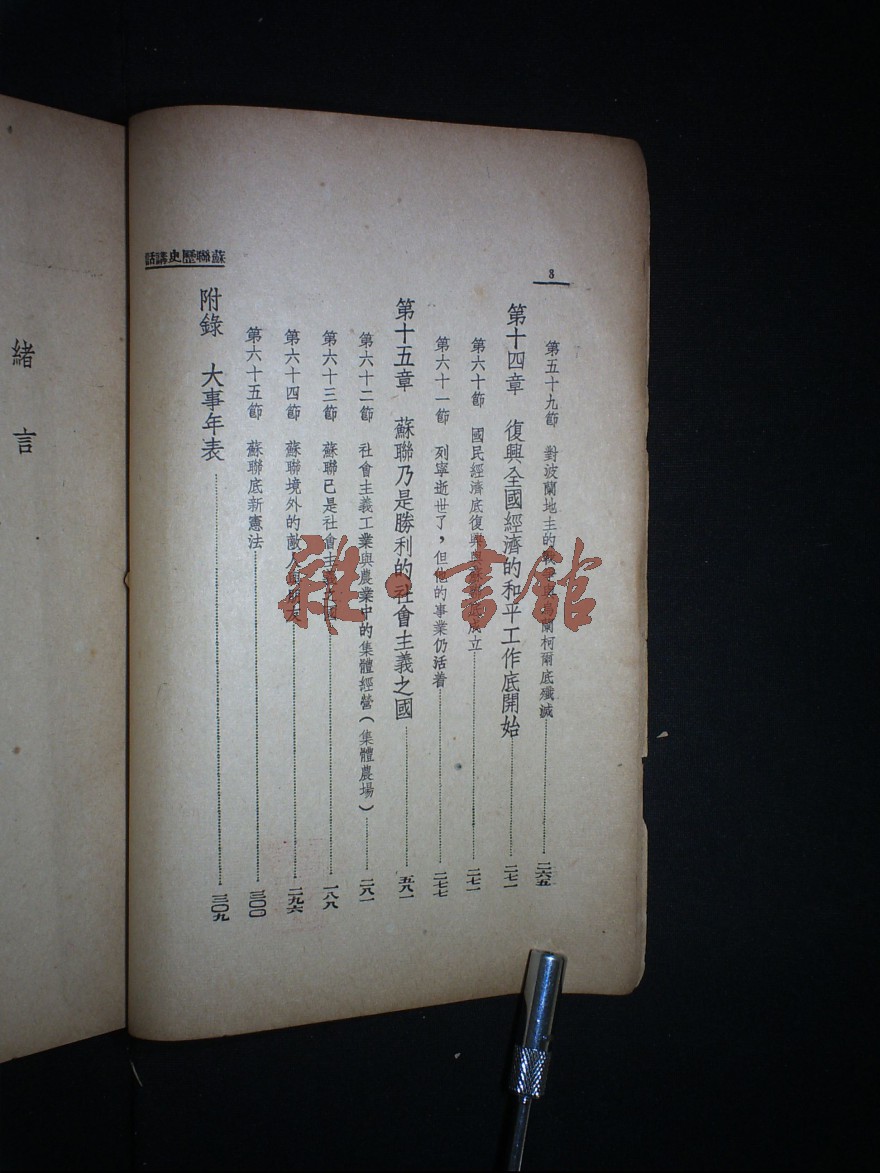 8
第五十九節　對波蘭地主的 蘭柯爾底殲滅 二六五
第十四章　復興全國經濟的和平工作底開始 二七一
第六十節　國民經濟底復興 成立 二七一
第六十一節　列寧逝世了，但他的事業仍活着 二七七
第十五章　蘇聯乃是勝利的社會主義之國 五八一
第六十二節　社會主義工業與農業中的集體經營（集體農場） 二八一
第六十三節　蘇聯已是社會主 一八八
第六十四節　蘇聯境外的敵人 朋友 二九六
第六十五節　蘇聯底新憲法 三〇〇
附錄　大事年表 三〇九
蘇聯歷史講話
緒言
雜·書館